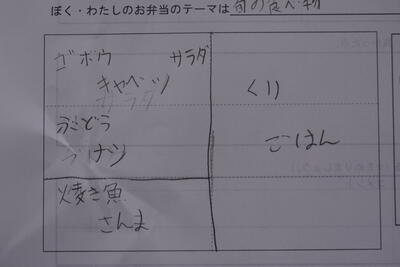 ぼく・わたしのお弁当のテーマは 旬の食べ物
ゴボウ サラダ
キャベツ
サラダ
ぶどう
くり
ごはん
焼き魚
さんま